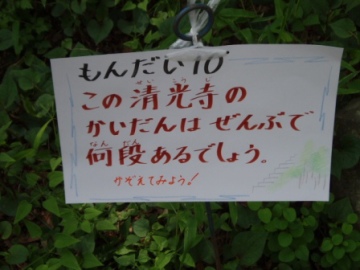 もんだい10
この清光寺の
かいだんは ぜんぶで
何段あるでしょう。
かぞえてみよう!